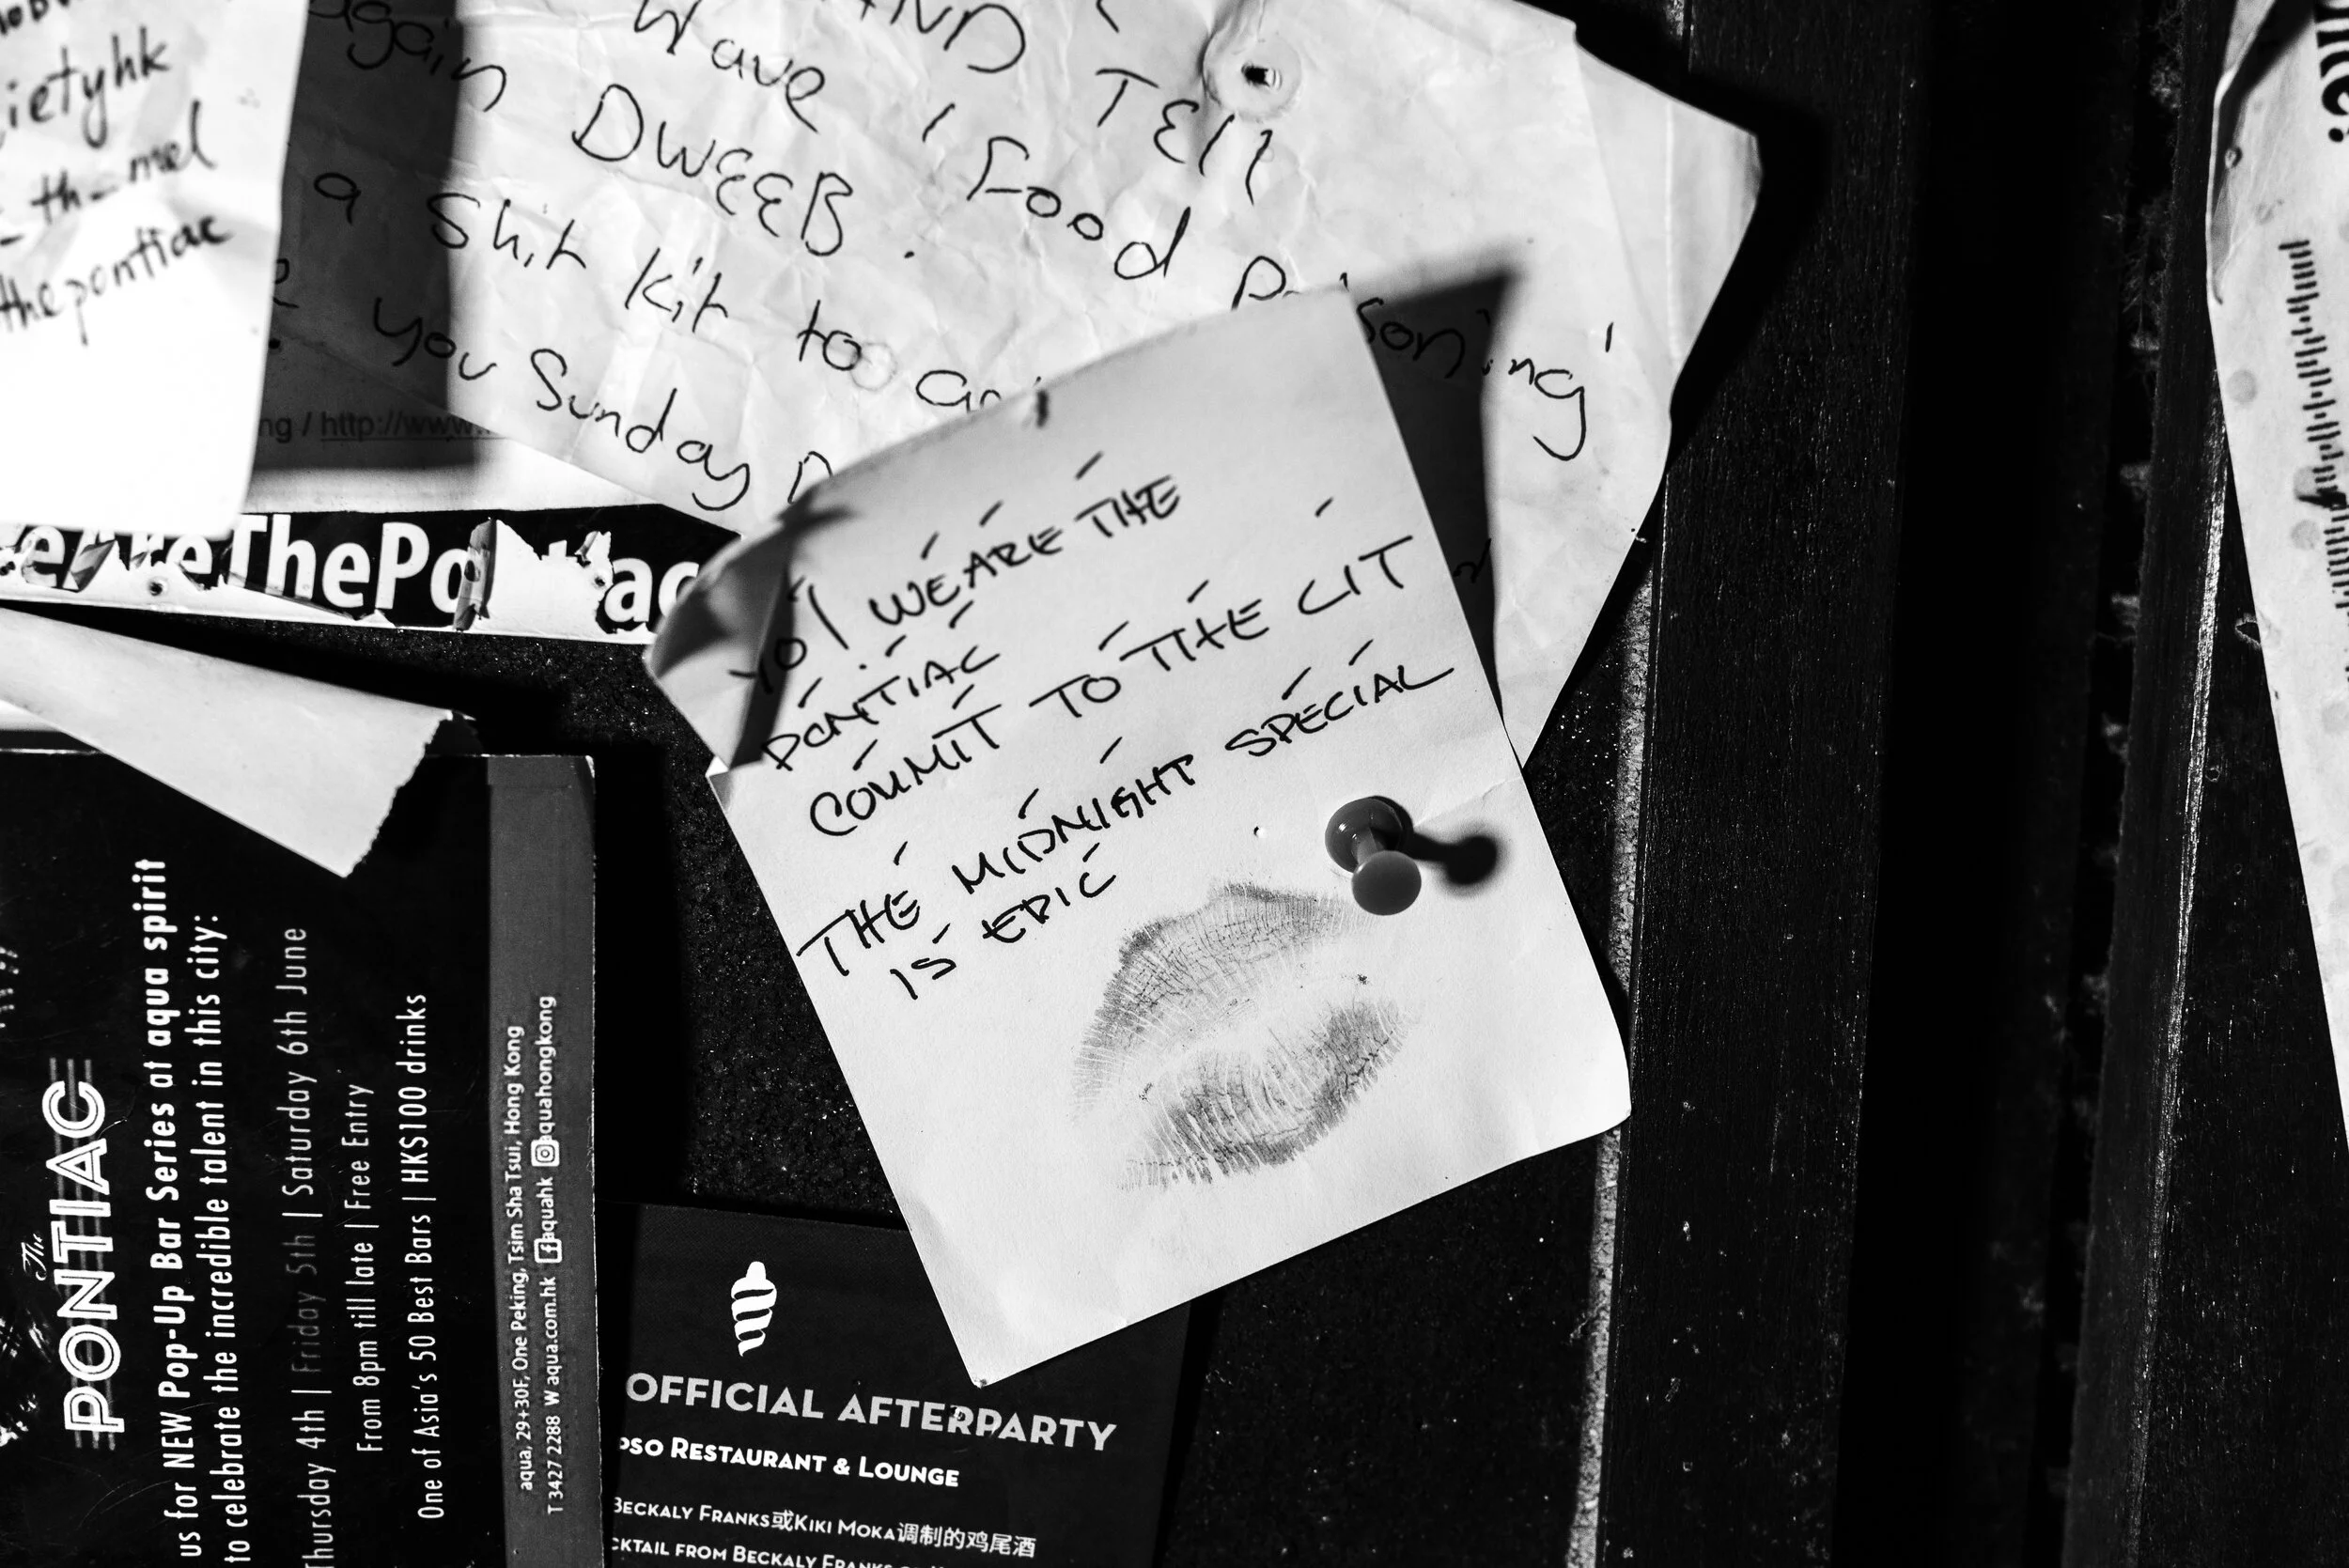 ietyhk
th_mel
thepontiac
AND TEll
Wave 'Food Poisoning'
again DWEEB.
a Shit Kit too
you Sunday
ng / http://www.
eAreThePo ac
YO! WE ARE THE
PONTIAC
COMMIT TO THE LIT
THE MIDNIGHT SPECIAL
IS EPIC
The
PONTIAC
us for NEW Pop-Up Bar Series at aqua spirit
to celebrate the incredible talent in this city:
Thursday 4th | Friday 5th | Saturday 6th June
From 8pm till late | Free Entry
One of Asia's 50 Best Bars | HK$100 drinks
aqua, 29+30F, One Peking, Tsim Sha Tsui, Hong Kong
T 3427 2288 W aqua.com.hk aquahk aquahongkong
OFFICIAL AFTERPARTY
PSO RESTAURANT & LOUNGE
BECKALY FRANKS或KIKI MOKA调制的鸡尾酒
CKTAIL FROM BECKALY FRANKS